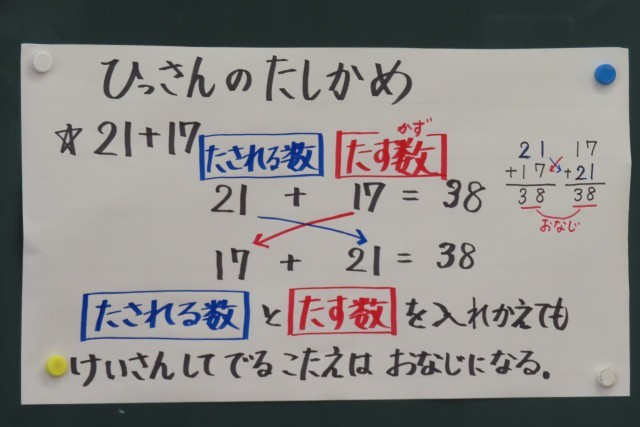 ひっさんのたしかめ
☆21+17
たされる数 たす数
かず
21 + 17 = 38
17 + 21 = 38
21
+17
38
17
+21
38
おなじ
たされる数とたす数を入れかえても
けいさんしてでるこたえはおなじになる。